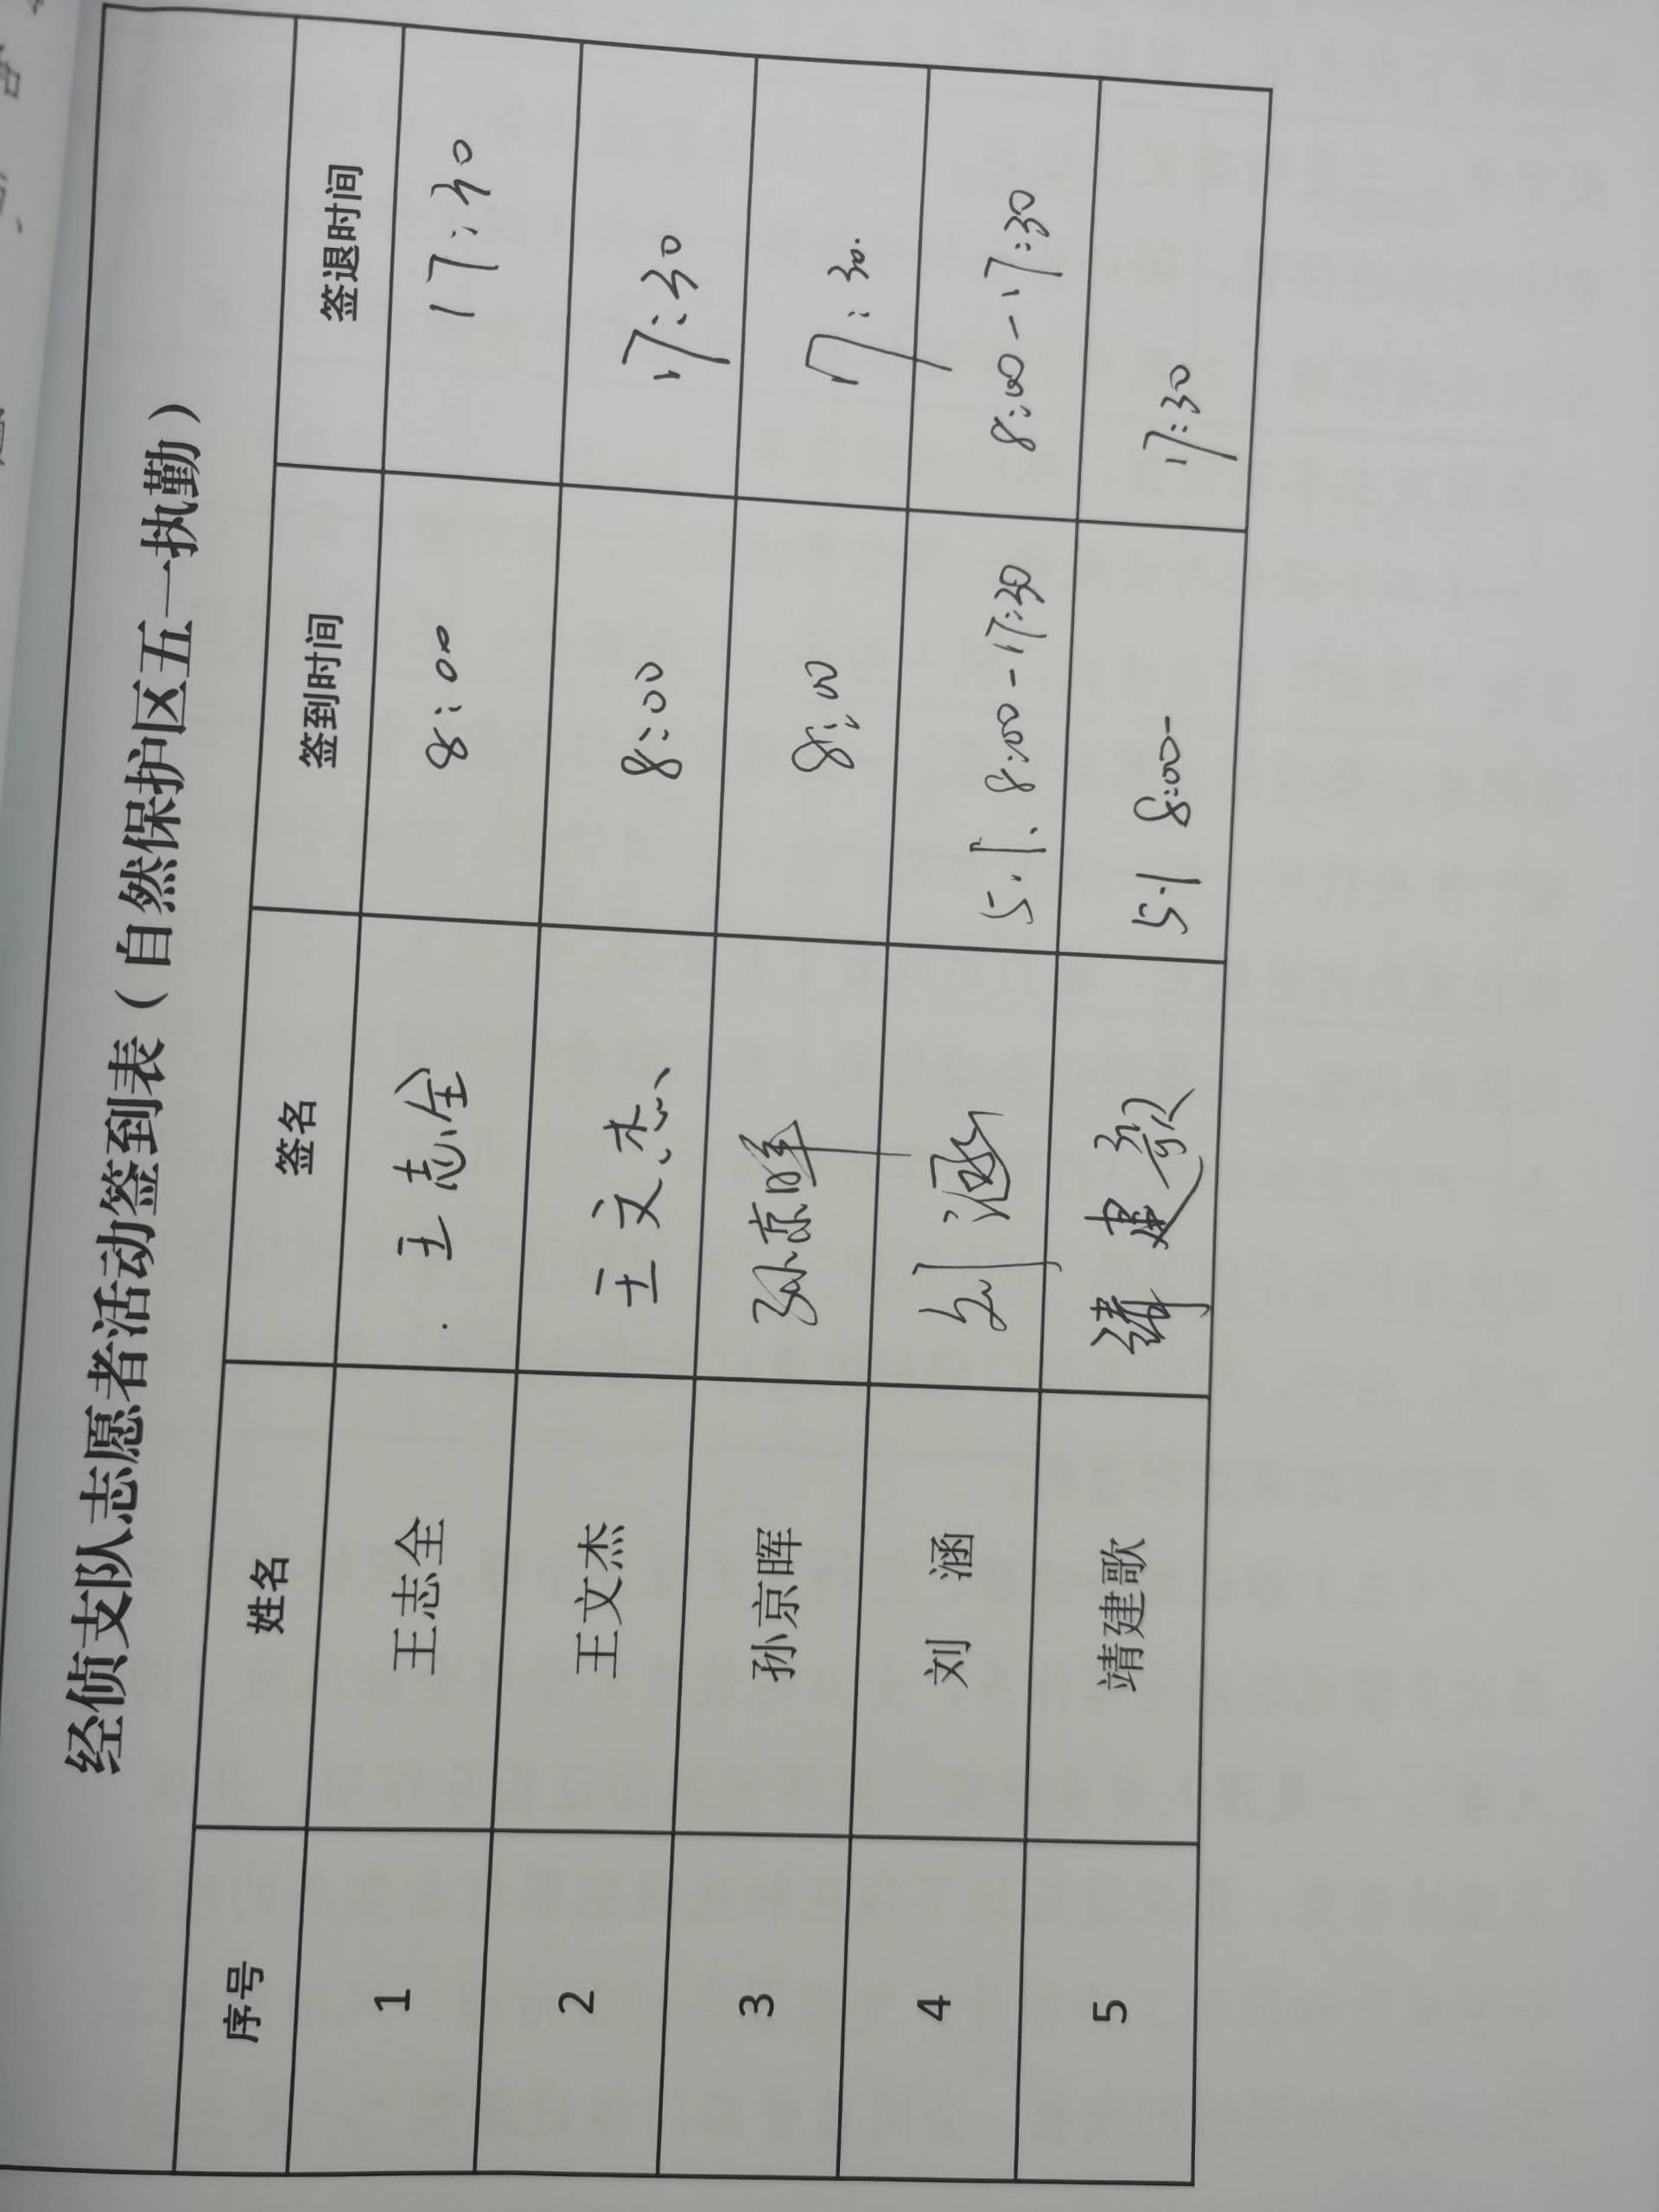 经侦支队志愿者活动签到表（自然保护区五一执勤）
序号 姓名 签名 签到时间 签退时间
1 王志全 王志全 8:00 17:30
2 王文杰 王文杰 8:00 17:30
3 孙京晖 孙京晖 8:00 17:30.
4 刘 涵 刘涵 5.1. 8:00-17:30 8:00-17:30
5 靖建歌 靖建歌 5.1 8:00- 17:30